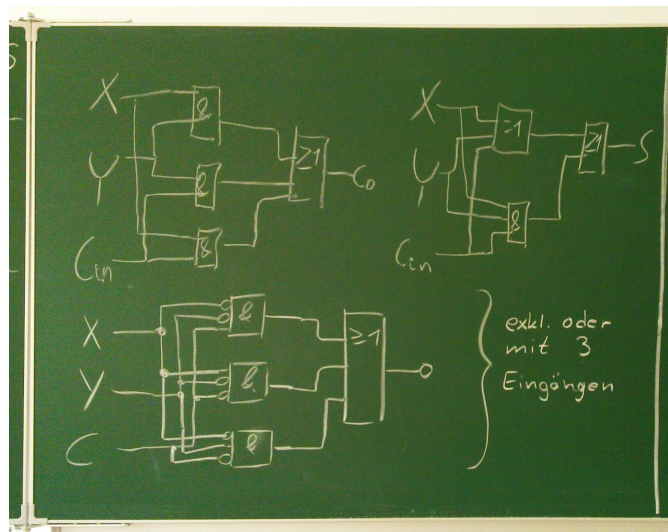 X
Y
Cin
&
&
&
≥1
Co
X
Y
Cin
≥1
&
≥1
S
X
Y
C
&
&
&
≥1
exkl. oder
mit 3
Eingängen